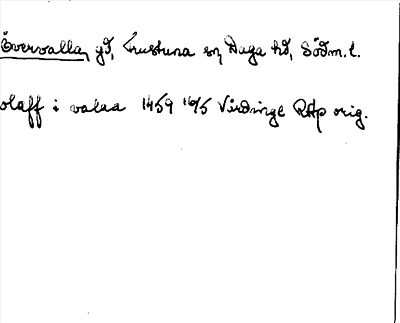 Övervalla, gd, Frustuna sn, Daga hd, Södm. l.
olaff i valaa 1459 16/5 Virdinge RAp orig.